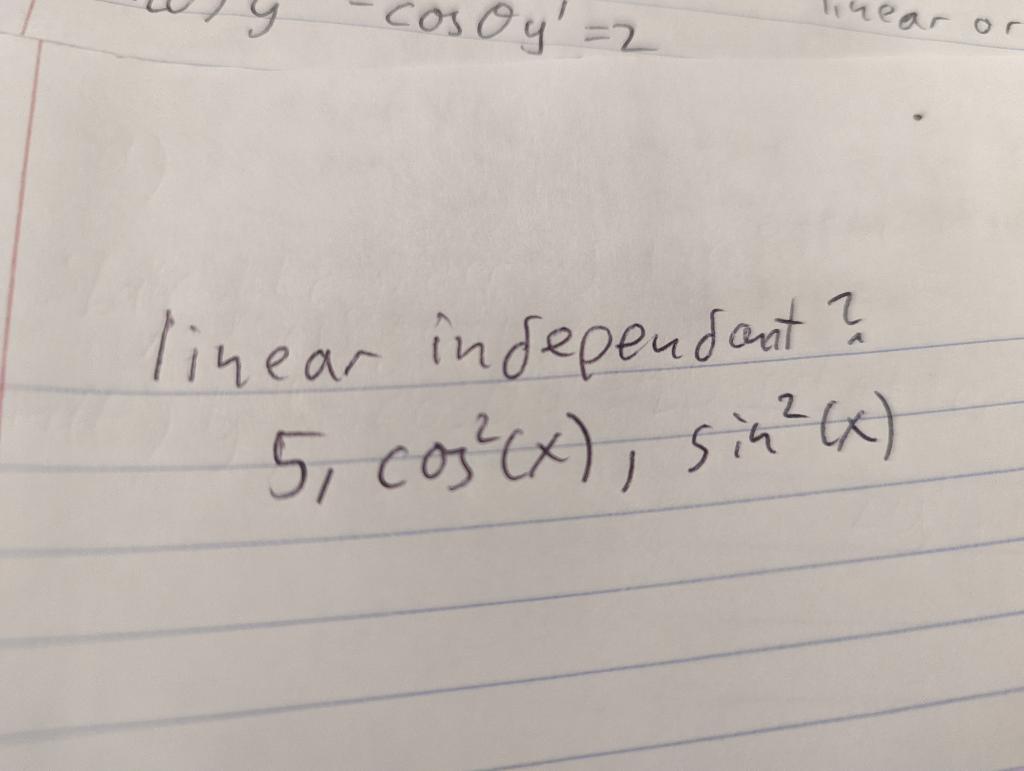 y - cosθy' = 2
linear or
linear independant?
5, cos²(x), sin²(x)